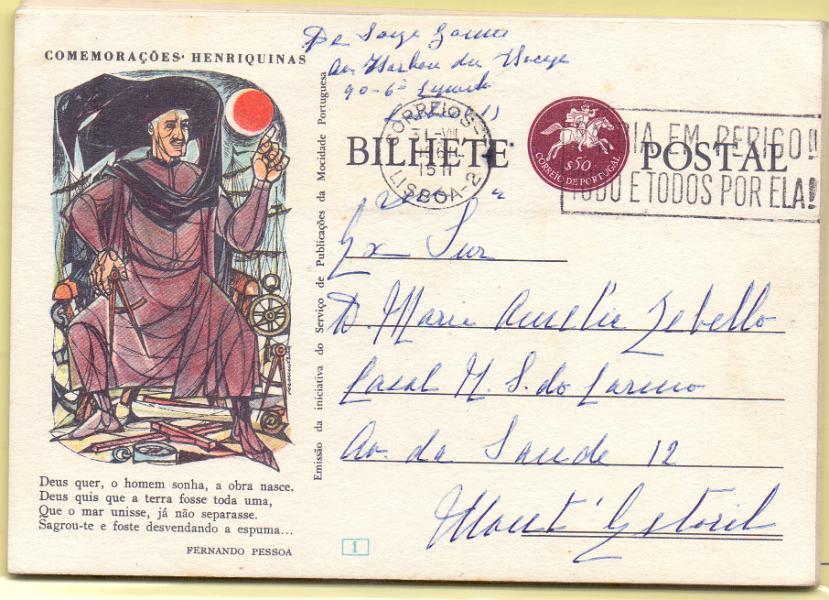 COMEMORAÇÕES HENRIQUINAS
De Jorge
90-6º
CORREIOS
31-VIII
15 H
LISBOA-2
BILHETE POSTAL
$50
CORREIO DE PORTUGAL
EM PERIGO!!
TUDO E TODOS POR ELA!
Emissão da iniciativa do Serviço de Publicações da Mocidade Portuguesa
D. Maria Aurélia Zebello
Casal N. S. do Carmo
Av. da Saude 12
Mont' Estoril
Deus quer, o homem sonha, a obra nasce.
Deus quis que a terra fosse toda uma,
Que o mar unisse, já não separasse.
Sagrou-te e foste desvendando a espuma...
FERNANDO PESSOA
1